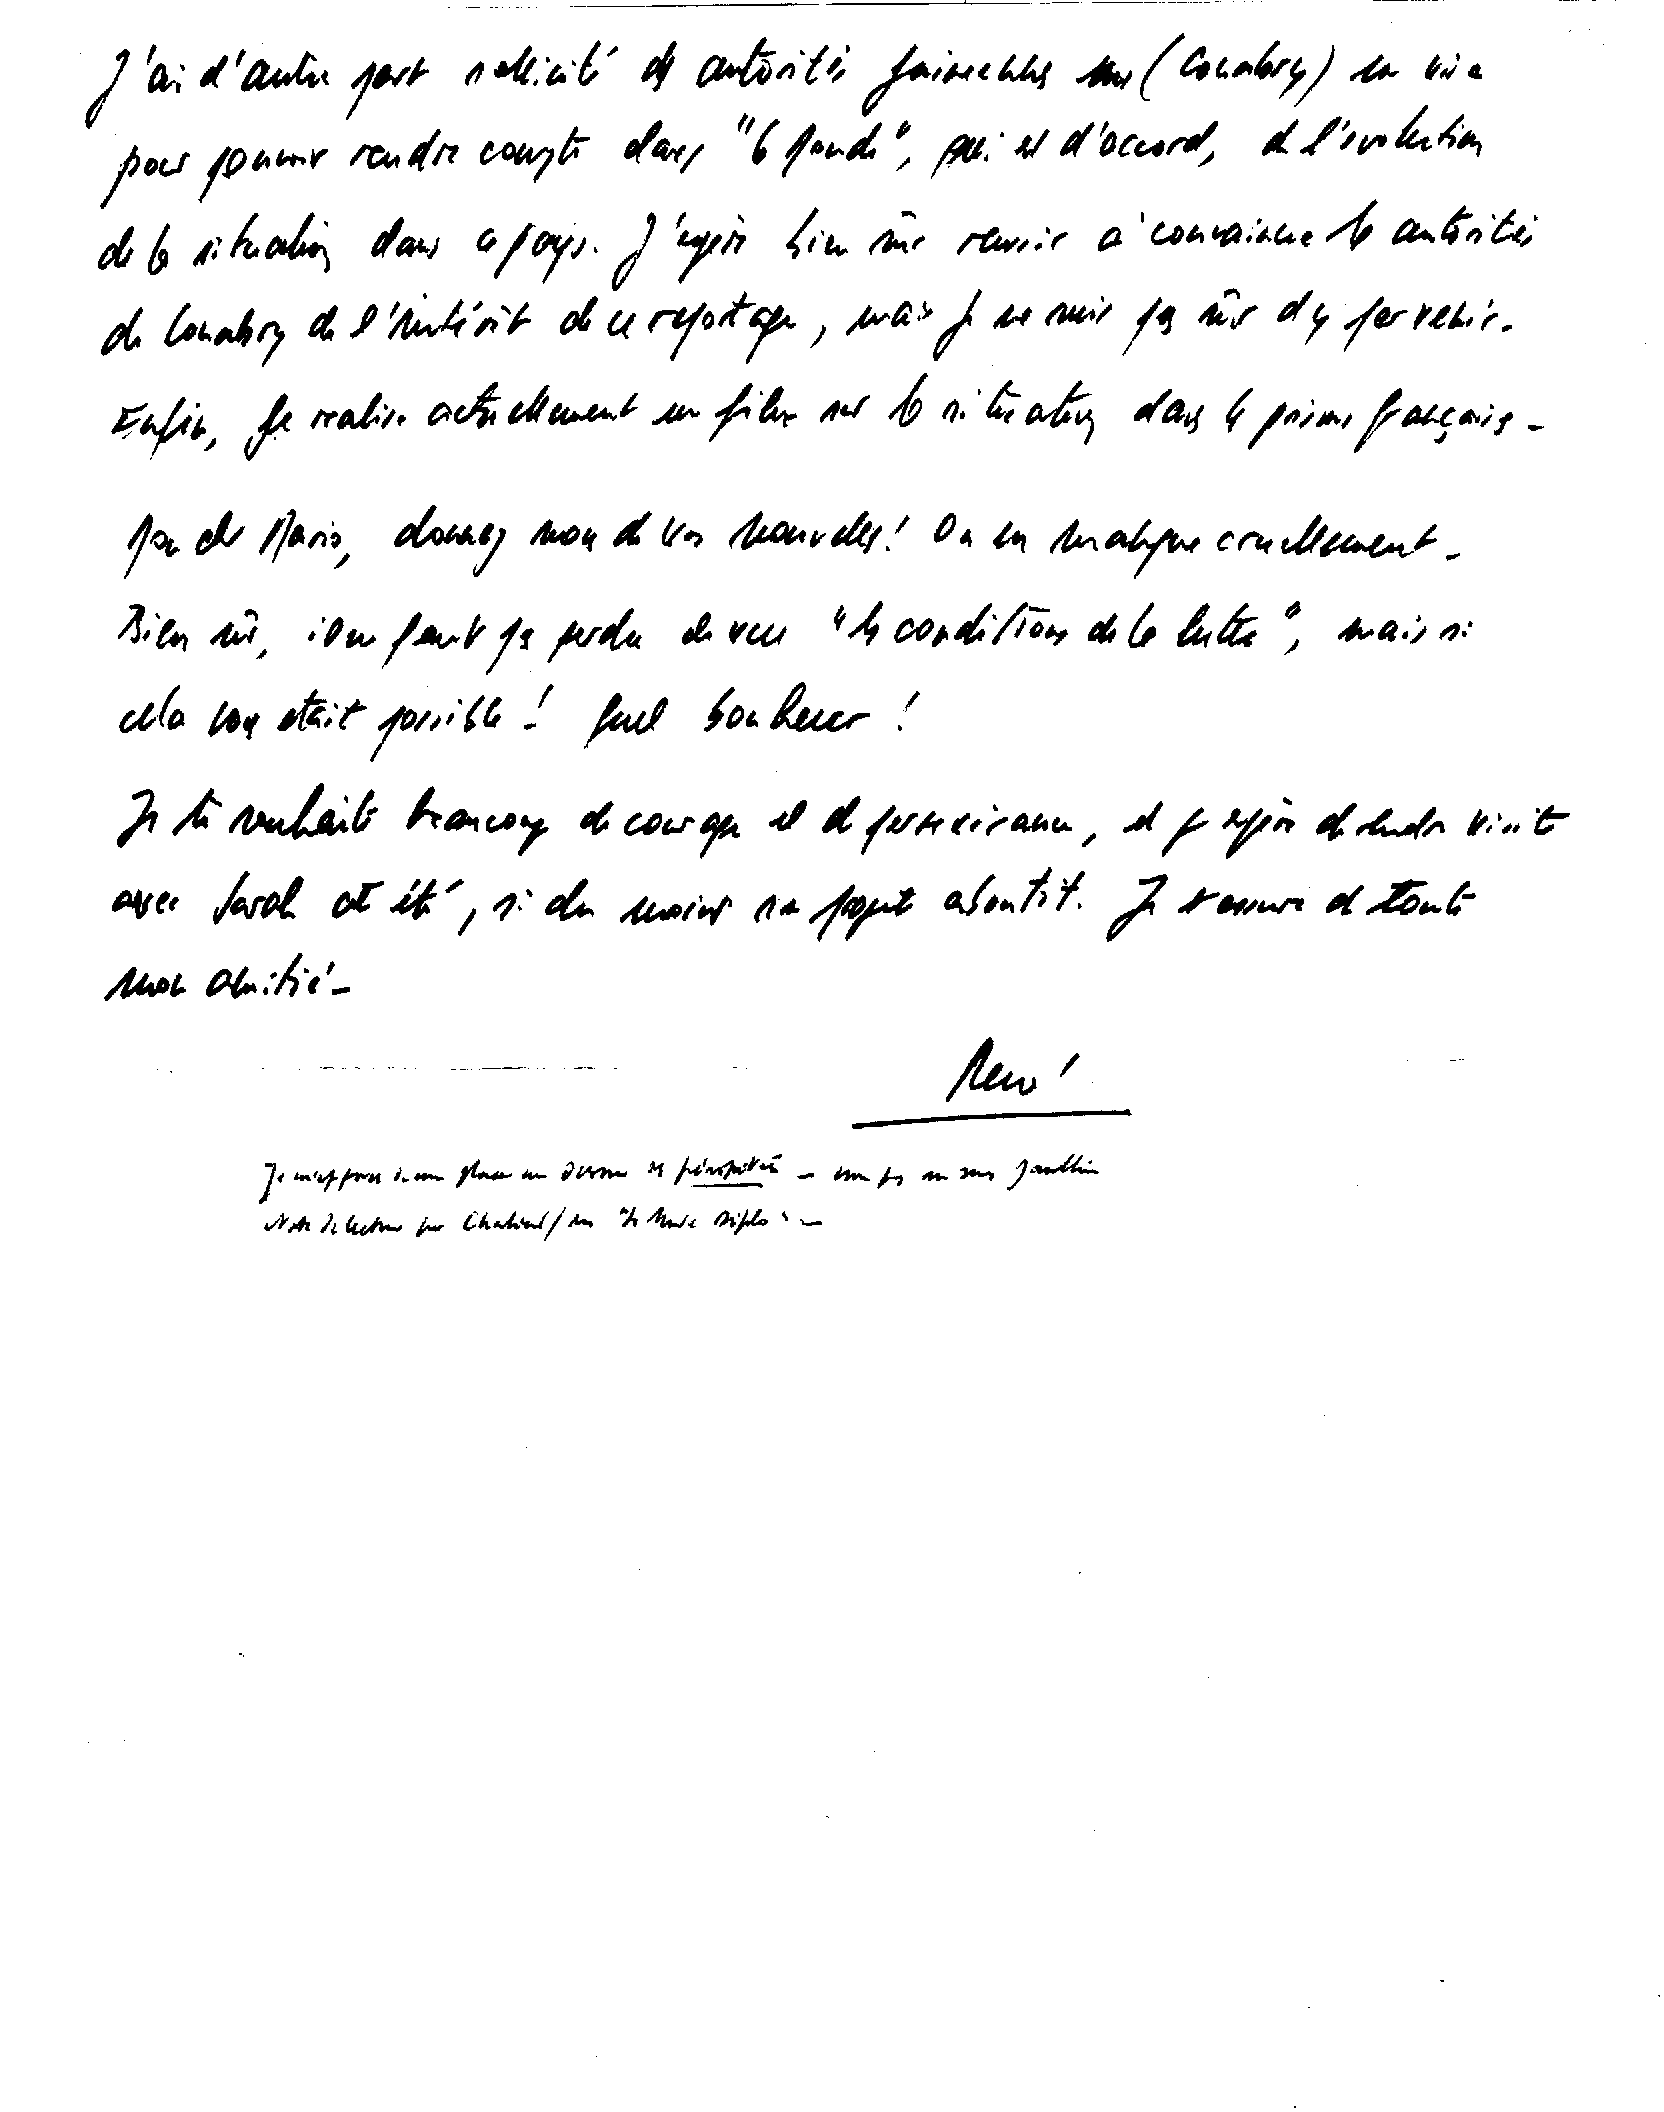 J'ai d'autre part sollicité des autorités guinéennes (Conakry) un visa
pour pouvoir rendre compte dans "le Monde", qui est d'accord, de l'évolution
de la situation dans ce pays. J'espère bien sûr réussir à convaincre les autorités
de Conakry de l'intérêt de ce reportage, mais je ne suis pas sûr d'y parvenir.
Enfin, je réalise actuellement un film sur la situation dans les prisons françaises -
Mon cher Mario, donnez nous de vos nouvelles ! On en manque cruellement -
Bien sûr, il ne faut pas perdre de vue "les conditions de la lutte", mais si
cela vous était possible ! Quel bonheur !
Je te souhaite beaucoup de courage et de persévérance, et j'espère te rendre visite
avec Sarah cet été, si du moins ce projet aboutit. Je t'assure de toute
mon amitié -
René
Je
Note de lecture par Chaliand / "le Monde diplo" -